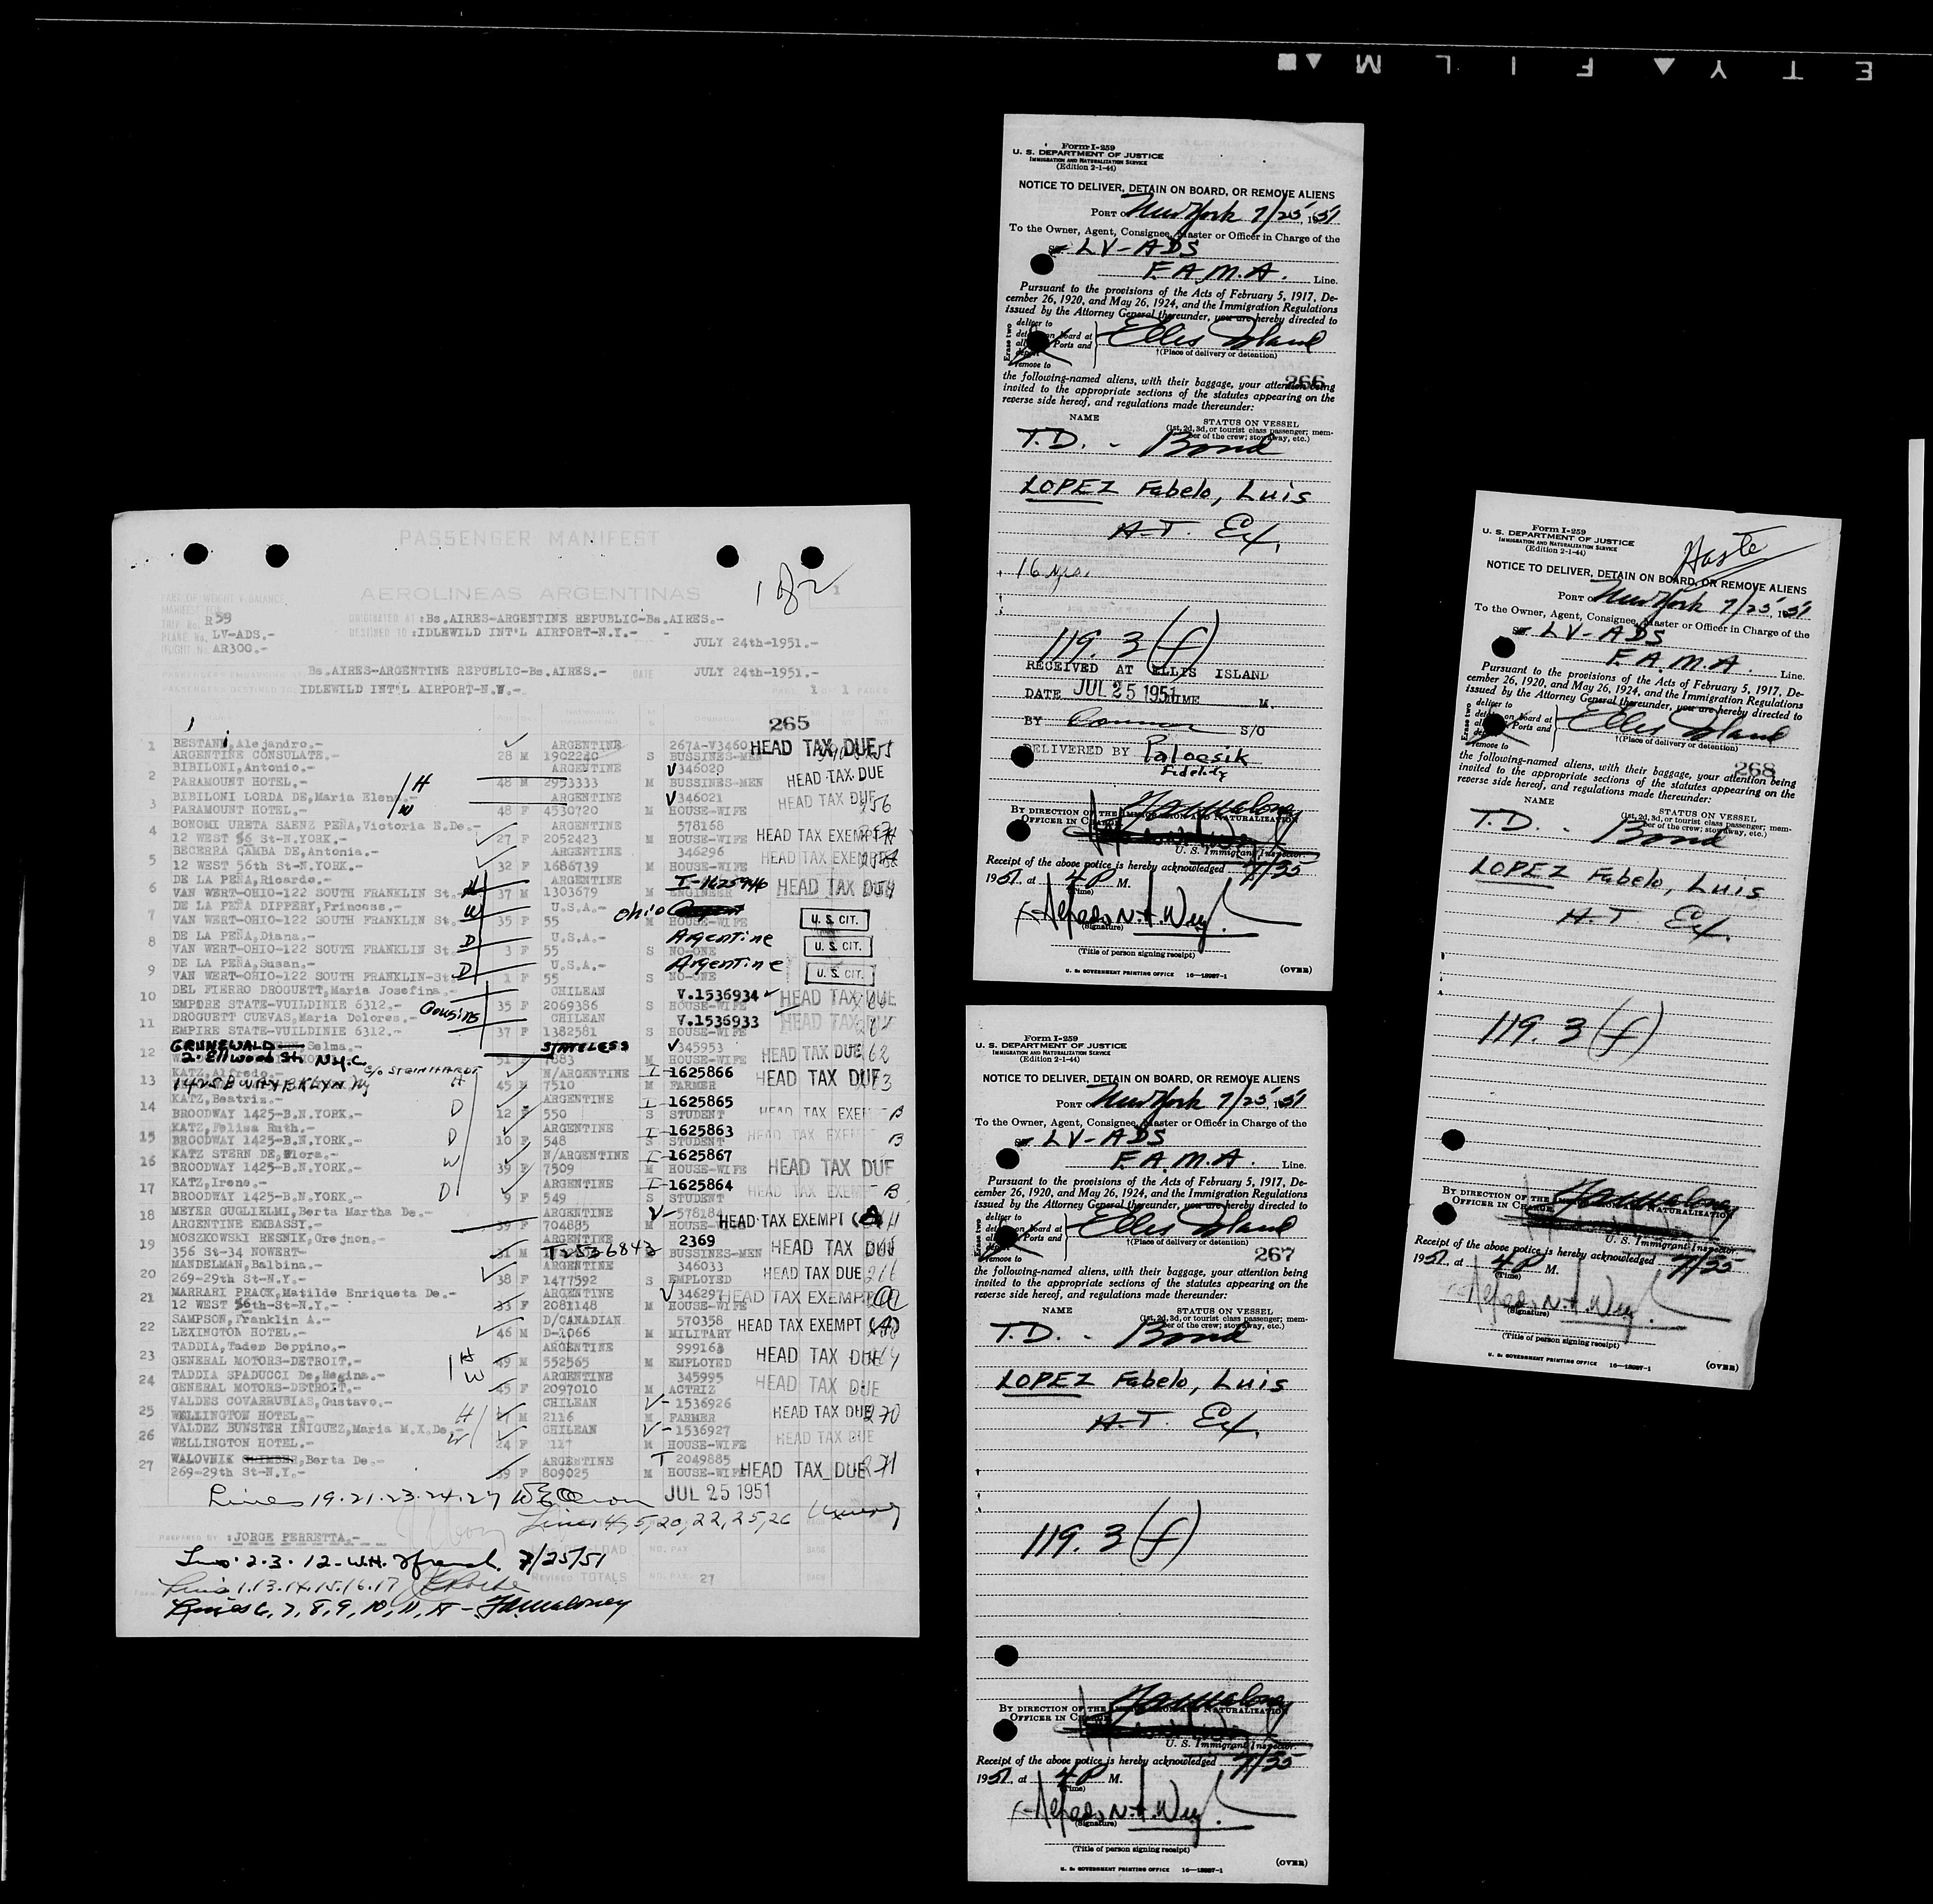 SAFETY FILM
PASSENGER MANIFEST
182
1
PART OF WEIGHT & BALANCE
MANIFEST FOR
AEROLINEAS ARGENTINAS
TRIP No. R 59
ORIGINATED AT :Bs.AIRES-ARGENTINE REPUBLIC-Bs.AIRES.-
PLANE No. LV-ADS.-
DESTINED TO :IDLEWILD INT'L AIRPORT-N.Y.- -
FLIGHT No. AR300.-
JULY 24th-1951.-
Bs.AIRES-ARGENTINE REPUBLIC-Bs.AIRES.- DATE JULY 24th-1951.-
IDLEWILD INT'L AIRPORT-N.W.- PAGE 1 OF 1 PAGES
265
1 BESTANI,Alejandro.- ARGENTINE 267A-V3460 HEAD TAX DUE
ARGENTINE CONSULATE.- 28 M 1902240 S BUSSINES-MEN
2 BIBILONI,Antonio.- ARGENTINE V346020 HEAD TAX DUE
PARAMOUNT HOTEL.- H 48 M 2953333 M BUSSINES-MEN
3 BIBILONI LORDA DE,Maria Elena.- ARGENTINE V346021 HEAD TAX DUE 256
PARAMOUNT HOTEL.- W 48 F 4530720 M HOUSE-WIFE
4 BONOMI URETA SAENZ PEÑA,Victoria E.De.- ARGENTINE 578168 HEAD TAX EXEMPT
12 WEST 56 St-N.YORK.- 27 F 2052423 M HOUSE-WIFE
5 BECERRA CAMBA DE,Antonia.- ARGENTINE 346296 HEAD TAX EXEMPT
12 WEST 56th St-N.YORK.- 32 F 1686739 M HOUSE-WIFE
6 DE LA PEÑA,Ricardo.- ARGENTINE I-1625946 HEAD TAX DUE
VAN WERT-OHIO-122 SOUTH FRANKLIN St.- H 37 M 1303679 M ENGINEER
7 DE LA PEÑA DIPPERY,Princess.- U.S.A.- Ohio U. S. CIT.
VAN WERT-OHIO-122 SOUTH FRANKLIN St.- W 35 F 55 M HOUSE-WIFE
8 DE LA PEÑA,Diana.- U.S.A.- Argentine U. S. CIT.
VAN WERT-OHIO-122 SOUTH FRANKLIN St.- D 3 F 55 S NO-ONE
9 DE LA PEÑA,Susan.- U.S.A.- Argentine U. S. CIT.
VAN WERT-OHIO-122 SOUTH FRANKLIN-St.- D 1 F 55 S NO-ONE
10 DEL FIERRO DROGUETT,Maria Josefina.- CHILEAN V.1536934 HEAD TAX DUE
EMPDRE STATE-VUILDINIE 6312.- Cousins 35 F 2069386 S HOUSE-WIFE
11 DROGUETT CUEVAS,Maria Dolores.- CHILEAN V.1536933 HEAD TAX DUE
EMPIRE STATE-VUILDINIE 6312.- 37 F 1382581 S HOUSE-WIFE
12 GRUNEWALD Selma.- STATELESS V345953 HEAD TAX DUE 62
2. Ellwood St. N.Y.C. 51 F 7883 M HOUSE-WIFE
c/o STEINHARDT
13 KATZ,Alfredo.- N/ARGENTINE I-1625866 HEAD TAX DUE
1425 B WAY BKLYN. NY H 45 M 7510 M FARMER
14 KATZ,Beatriz.- ARGENTINE I-1625865 HEAD TAX EXEMPT B
BROODWAY 1425-B.N.YORK.- D 12 F 550 S STUDENT
15 KATZ,Felisa Ruth.- ARGENTINE I-1625863 HEAD TAX EXEMPT B
BROODWAY 1425-B.N.YORK.- D 10 F 548 S STUDENT
16 KATZ STERN DE,Flora.- N/ARGENTINE I-1625867 HEAD TAX DUE
BROODWAY 1425-B.N.YORK.- W 39 F 7509 M HOUSE-WIFE
17 KATZ,Irene.- ARGENTINE I-1625864 HEAD TAX EXEMPT B
BROODWAY 1425-B.N.YORK.- D 9 F 549 S STUDENT
18 MEYER GUGLIELMI,Berta Martha De.- ARGENTINE V-578184 HEAD TAX EXEMPT
ARGENTINE EMBASSY.- 39 F 704885 M HOUSE-
19 MOSZKOWSKI RESNIK,Grejnon.- ARGENTINE 2369 HEAD TAX DUE
356 St-34 NOWERT- 31 M T-2536843 BUSSINES-MEN
20 MANDELMAN,Balbina.- ARGENTINE 346033 HEAD TAX DUE 266
269-29th St-N.Y.- 38 F 1477592 S EMPLOYED
21 MARRARI PRACK,Matilde Enriqueta De.- ARGENTINE V346297 HEAD TAX EXEMPT
12 WEST 56th-St-N.Y.- 33 F 2081148 M HOUSE-WIFE
22 SAMPSON,Franklin A.- D/CANADIAN 570358 HEAD TAX EXEMPT (A)
LEXINGTON HOTEL.- 46 M D-1066 M MILITARY
23 TADDIA,Tadeo Beppino.- ARGENTINE 999163 HEAD TAX DUE
GENERAL MOTORS-DETROIT.- H 49 M 552565 M EMPLOYED
24 TADDIA SPADUCCI De,Regina.- ARGENTINE 345995 HEAD TAX DUE
GENERAL MOTORS-DETROIT.- W 45 F 2097010 M ACTRIZ
25 VALDES COVARRUBIAS,Gustavo.- CHILEAN V-1536926 HEAD TAX DUE 270
WELLINGTON HOTEL.- H M 2116 M FARMER
26 VALDEZ BUNSTER IÑIGUEZ,Maria M.X.De.- CHILEAN V-1536927 HEAD TAX DUE
WELLINGTON HOTEL.- W 24 F M HOUSE-WIFE
27 WALOVNIK ,Berta De.- ARGENTINE T 2049885 HEAD TAX DUE 271
269-29th St-N.Y.- 39 F 809025 M HOUSE-WIFE
Lines 19.21.23.24.27
JUL 25 1951
Lines 4,5,20,22,25,26
PREPARED BY :JORGE PERRETTA.-
Lines 2.3.12- W.H. French 7/25/51
REVISED TOTALS NO. PAX 27
Lines 1.13.14.15.16.17
Lines 6, 7, 8, 9, 10, 11, - FA Maloney
Form I-259
U. S. DEPARTMENT OF JUSTICE
IMMIGRATION AND NATURALIZATION SERVICE
(Edition 2-1-44)
NOTICE TO DELIVER, DETAIN ON BOARD, OR REMOVE ALIENS
PORT OF New York 7/25, 1951
To the Owner, Agent, Consignee, Master or Officer in Charge of the
SS LV-ADS
F.A.M.A. Line.
Pursuant to the provisions of the Acts of February 5, 1917, De-
cember 26, 1920, and May 26, 1924, and the Immigration Regulations
issued by the Attorney General thereunder, you are hereby directed to
Erase two
deliver to
detain on board at
all Ports and
deport
remove to
Ellis Island
†(Place of delivery or detention)
266
the following-named aliens, with their baggage, your attention being
invited to the appropriate sections of the statutes appearing on the
reverse side hereof, and regulations made thereunder:
NAME STATUS ON VESSEL
(1st, 2d, 3d, or tourist class passenger; mem-
ber of the crew; stowaway, etc.)
T.D. - Bond
LOPEZ Fabelo, Luis
H.T. Ex.
16 yrs.
119.3 (f)
RECEIVED AT ELLIS ISLAND
DATE JUL 25 1951 TIME M.
BY S/O
DELIVERED BY Paloesik
Fidelity
BY DIRECTION OF THE IMMIGRATION AND NATURALIZATION
OFFICER IN CHARGE FA Maloney
U. S. Immigrant Inspector.
Receipt of the above notice is hereby acknowledged 7/25
1951, at 4 P M.
(Time)
(Signature)
(Title of person signing receipt)
U. S. GOVERNMENT PRINTING OFFICE 16-18987-1 (OVER)
Form I-259
U. S. DEPARTMENT OF JUSTICE
IMMIGRATION AND NATURALIZATION SERVICE
(Edition 2-1-44)
NOTICE TO DELIVER, DETAIN ON BOARD, OR REMOVE ALIENS
PORT OF New York 7/25, 1951
To the Owner, Agent, Consignee, Master or Officer in Charge of the
SS LV-ADS
F.A.M.A. Line.
Pursuant to the provisions of the Acts of February 5, 1917, De-
cember 26, 1920, and May 26, 1924, and the Immigration Regulations
issued by the Attorney General thereunder, you are hereby directed to
Erase two
deliver to
detain on board at
all Ports and
remove to
Ellis Island
†(Place of delivery or detention)
267
the following-named aliens, with their baggage, your attention being
invited to the appropriate sections of the statutes appearing on the
reverse side hereof, and regulations made thereunder:
NAME STATUS ON VESSEL
(1st, 2d, 3d, or tourist class passenger; mem-
ber of the crew; stowaway, etc.)
T.D. - Bond
LOPEZ Fabelo, Luis
H.T. Ex.
119.3 (f)
BY DIRECTION OF THE IMMIGRATION AND NATURALIZATION
OFFICER IN CHARGE FA Maloney
U. S. Immigrant Inspector.
Receipt of the above notice is hereby acknowledged 7/25
1951, at 4 P M.
(Time)
(Signature)
(Title of person signing receipt)
U. S. GOVERNMENT PRINTING OFFICE 16-18987-1 (OVER)
Haste
Form I-259
U. S. DEPARTMENT OF JUSTICE
IMMIGRATION AND NATURALIZATION SERVICE
(Edition 2-1-44)
NOTICE TO DELIVER, DETAIN ON BOARD, OR REMOVE ALIENS
PORT OF New York 7/25, 1951
To the Owner, Agent, Consignee, Master or Officer in Charge of the
SS LV-ADS
F.A.M.A. Line.
Pursuant to the provisions of the Acts of February 5, 1917, De-
cember 26, 1920, and May 26, 1924, and the Immigration Regulations
issued by the Attorney General thereunder, you are hereby directed to
Erase two
deliver to
detain on board at
all Ports and
remove to
Ellis Island
†(Place of delivery or detention)
268
the following-named aliens, with their baggage, your attention being
invited to the appropriate sections of the statutes appearing on the
reverse side hereof, and regulations made thereunder:
NAME STATUS ON VESSEL
(1st, 2d, 3d, or tourist class passenger; mem-
ber of the crew; stowaway, etc.)
T.D. - Bond
LOPEZ Fabelo, Luis
H.T. Ex.
119.3 (f)
BY DIRECTION OF THE IMMIGRATION AND NATURALIZATION
OFFICER IN CHARGE FA Maloney
U. S. Immigrant Inspector.
Receipt of the above notice is hereby acknowledged 7/25
1951, at 4 P M.
(Time)
(Signature)
(Title of person signing receipt)
U. S. GOVERNMENT PRINTING OFFICE 16-18987-1 (OVER)